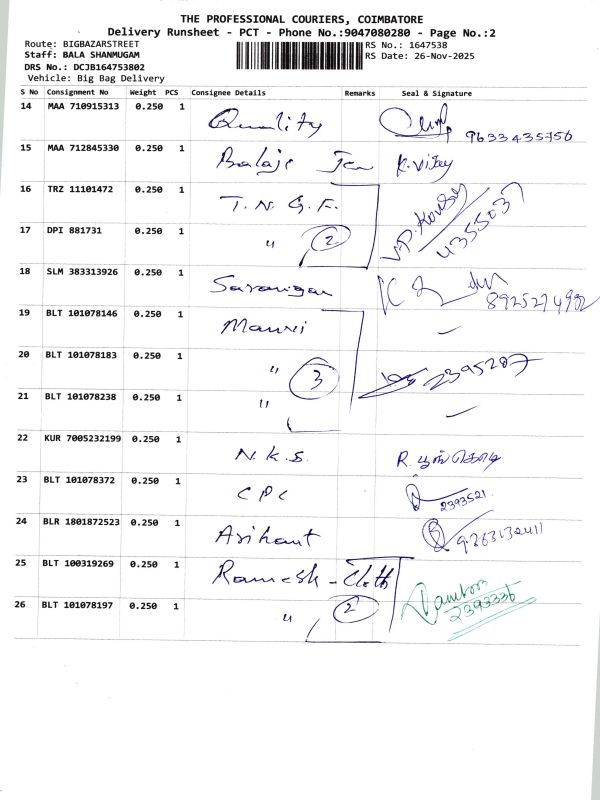 THE PROFESSIONAL COURIERS, COIMBATORE
Delivery Runsheet - PCT - Phone No.:9047080280 - Page No.:2
Route: BIGBAZARSTREET
RS No.: 1647538
Staff: BALA SHANMUGAM
RS Date: 26-Nov-2025
DRS No.: DCJB164753802
Vehicle: Big Bag Delivery
S No Consignment No Weight PCS Consignee Details Remarks Seal & Signature
14 MAA 710915313 0.250 1 Quality 9633435756
15 MAA 712845330 0.250 1 Balaje K. Vijay
16 TRZ 11101472 0.250 1 T.N.G.F.
17 DPI 881731 0.250 1 " 2 4355037
18 SLM 383313926 0.250 1 8925274982
19 BLT 101078146 0.250 1
20 BLT 101078183 0.250 1 " 3 2395287
21 BLT 101078238 0.250 1 "
22 KUR 7005232199 0.250 1 N.K.S. R. பூங்கொடி
23 BLT 101078372 0.250 1 CPC 2393521
24 BLR 1801872523 0.250 1 Arihant
25 BLT 100319269 0.250 1 Ramesh - Cloth
26 BLT 101078197 0.250 1 " 2 2393336